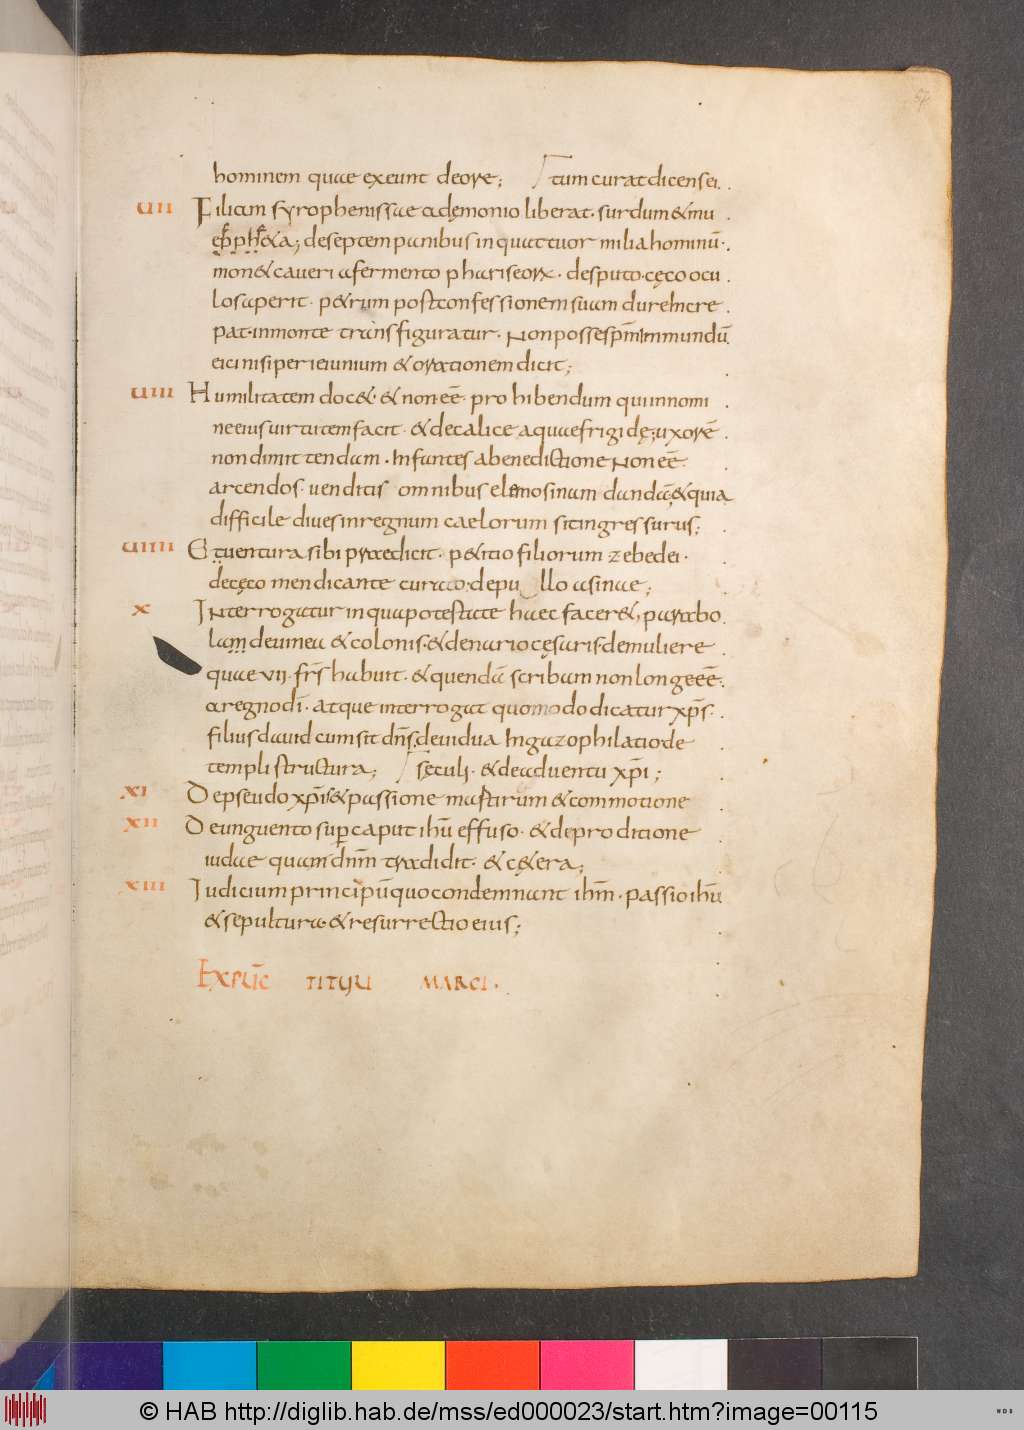 57
hominem quae exeunt deore; Γtum curat dicens ei.
VII Filiam syrophenissae a dęmonio liberat· surdum & mu
eph̄ph&a; de septem panibus in quattuor milia hominū·
mon& caveri a fermento phariseorx· desputo cęco ocu
los aperit· p&rum post confessionem suam dure incre
pat· in monte transfiguratur· Non posse sp̄m inmundū
eici nisi per ieiunium & orationem dicit;
VIII Humilitatem doc&· & non eē· prohibendum qui in nomi
ne eius virtutem facit· & de calice aquae frigidę; uxorē
non dimittendam· Infantes a benedictione Non eē·
arcendos· venditis omnibus elemosinam dandā; & quia
difficile dives in regnum caelorum sit ingressurus;
VIIII Et ventura sibi praedicit· p&itio filiorum zebedei·
de cęco mendicante curato· de pullo asinae;
X Interrogatur in qua potestate haec facer&, parabo
lam de vinea & colonis· & denario cęsaris· de muliere
quae VII· fr̄s habuit· & quendā scribam non longe eē·
a regno dī· atque interrogat quomodo dicatur xp̄s·
filius david cum sit dn̄s, de vidua In gazophilatio· de
templi structura; Γsęculi· & de adventu xp̄i;
XI De pseudo xp̄is & passione martirum & commotione
XII De unguento super caput ihū effuso· & de proditione
iudae quam dn̄m tradidit· & c&era;
XIII Iudicium principū quo condemnant ihm̄· passio ihū
& sepultura· & resurrectio eius;
EXPLIC̄ TITULI MARCI·
© HAB http://diglib.hab.de/mss/ed000023/start.htm?image=00115